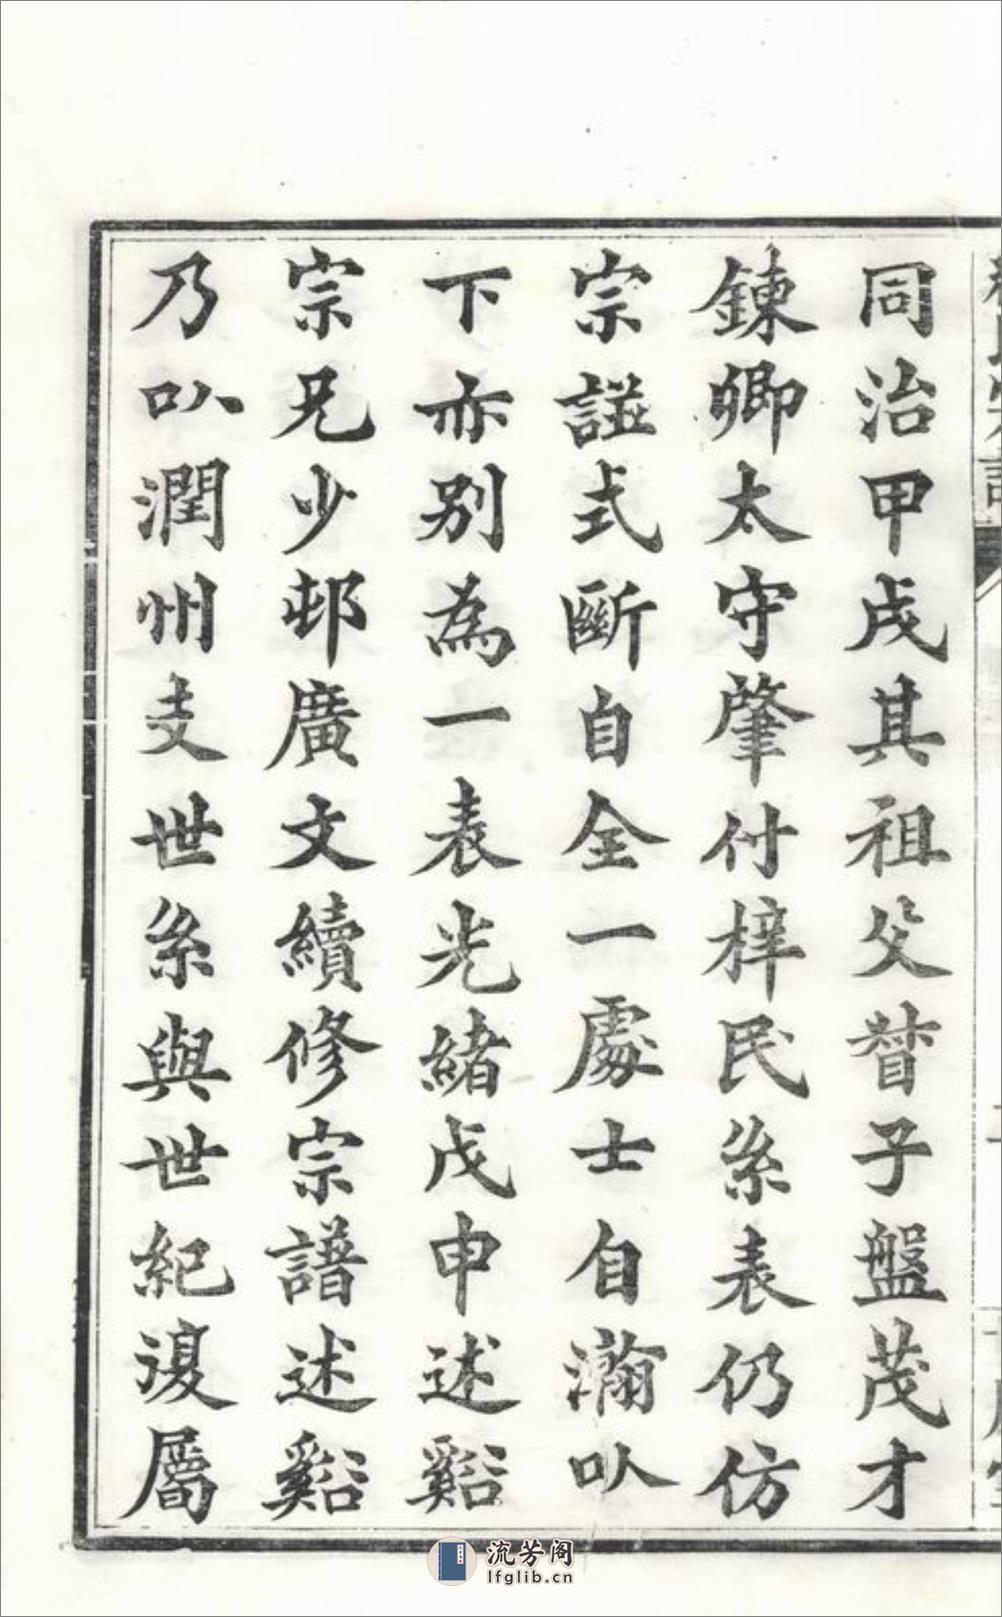 同治甲戌其祖父朁子盤茂才
鍊卿太守肇付梓民糸表仍仿
宗諡式斷自全一處士自瀚㕥
下亦別為一表光緒戊申述谿
宗兄少邨廣文續修宗譜述谿
乃㕥潤州支世糸與世紀復屬
流芳阁
lfglib.cn